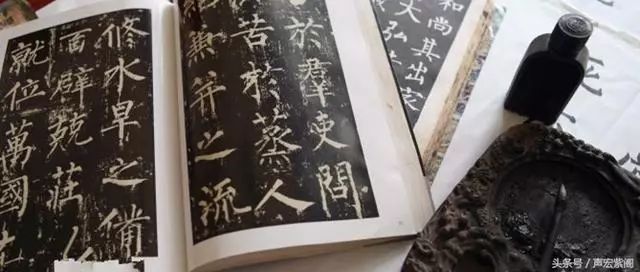 和尚其出家
大弘
於羣吏問
苦於蒸人
并之流
修水旱之備
面辟兢莊
就位萬國
头条号/声宏紫阁